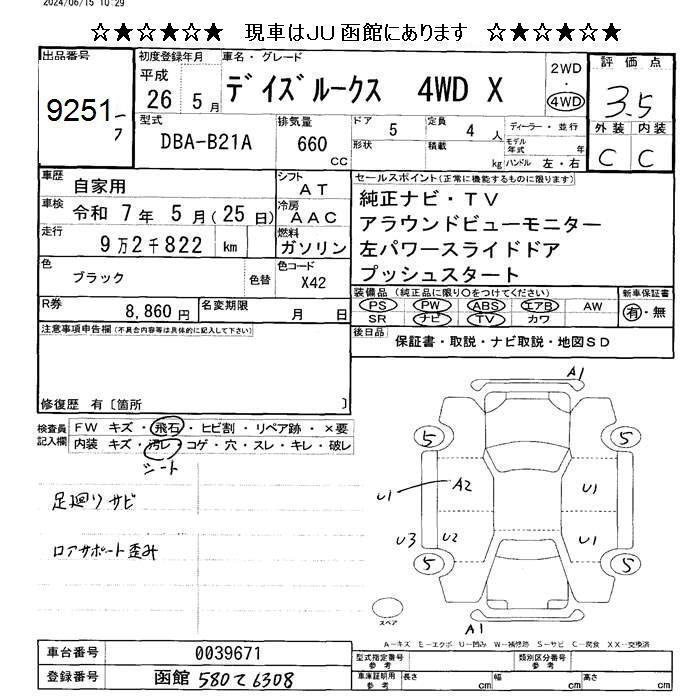 2024/06/15 10:29
☆★☆★☆★ 現車はJU函館にあります ☆★☆★☆★
出品番号
9251
初度登録年月
平成
26 5月
車名・グレード
デイズルークス 4WD X
2WD
・
4WD
評価点
3.5
外装 内装
C C
型式
DBA-B21A
排気量
660
CC
ドア 5
定員 4 人
ディーラー・並行
形状
積載 kg
モデル年式 年
ハンドル 左・右
車歴
自家用
シフト
AT
車検 令和 7年 5月(25日)
冷房
AAC
走行
9万2千822 km
燃料
ガソリン
色
ブラック
色替
色コード
X42
R券
8,860円
名変期限
月 日
セールスポイント(正常に機能するものに限ります)
純正ナビ・TV
アラウンドビューモニター
左パワースライドドア
プッシュスタート
装備品(純正品に限り〇をつけてください)
PS PW ABS エアB AW
SR ナビ TV カワ
新車保証書
有・無
後日品
保証書・取説・ナビ取説・地図SD
注意事項申告欄(不具合内容等は具体的に記入して下さい)
修復歴 有〔箇所 〕
検査員
記入欄
FW キズ・飛石・ヒビ割・リペア跡・×要
内装 キズ・汚レ・コゲ・穴・スレ・キレ・破レ
シート
足廻りサビ
ロアサポート歪み
A1
5 5
U1 A2 U1
U3 U2 U1
5 5
スペア
A1
A-キズ E-エクボ U-凹み W-補修跡 S-サビ C-腐食 XX-交換済
車台番号 0039671
登録番号 函館 580て6308
型式指定番号
参考
類別区分番号
参考
車庫証明用
参考
長さ cm
幅 cm
高さ cm